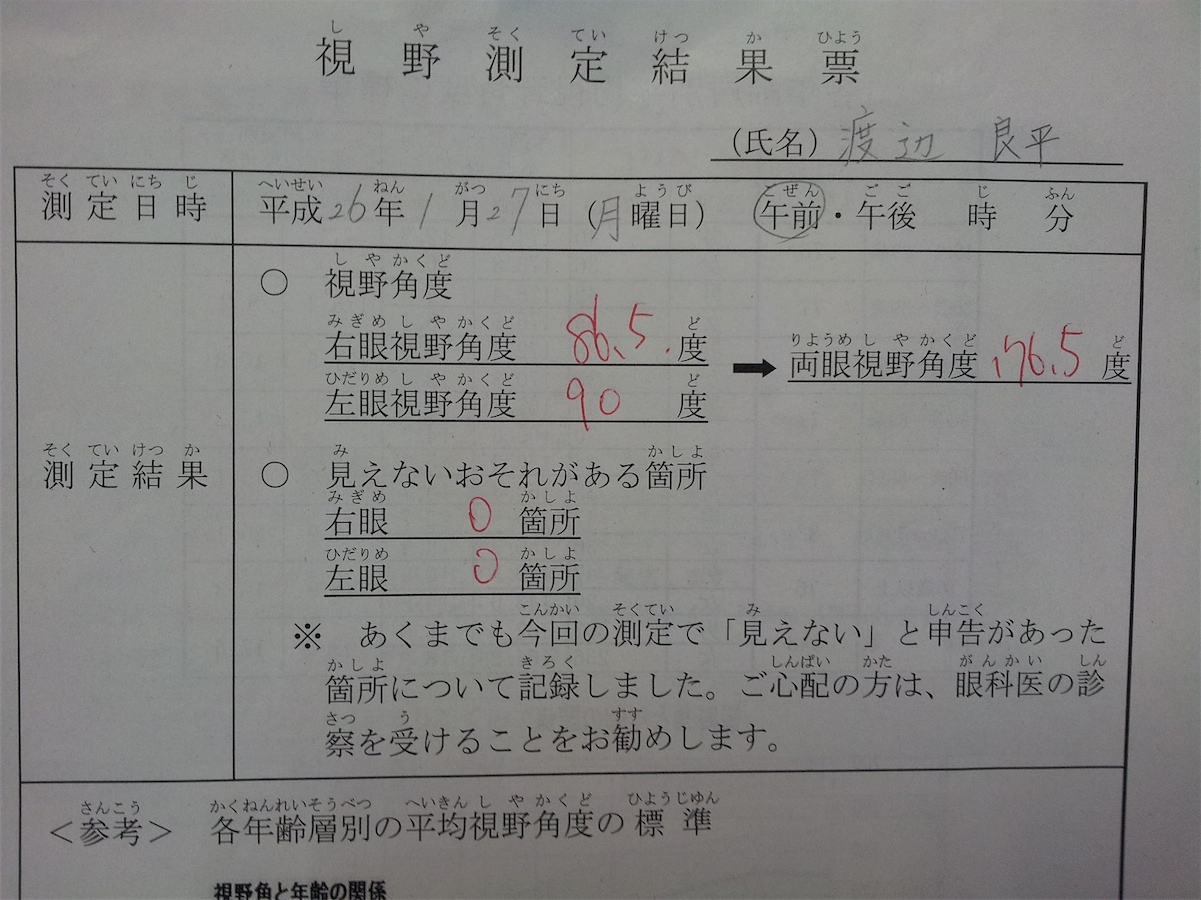 視野測定結果票
(氏名) 渡辺 良平
測定日時 平成26年1月27日 (月曜日) 午前・午後 時 分
測定結果
○ 視野角度
右眼視野角度 86.5.度
左眼視野角度 90 度
➡ 両眼視野角度 176.5 度
○ 見えないおそれがある箇所
右眼 0 箇所
左眼 0 箇所
※ あくまでも今回の測定で「見えない」と申告があった
箇所について記録しました。ご心配の方は、眼科医の診
察を受けることをお勧めします。
<参考> 各年齢層別の平均視野角度の標準
視野角と年齢の関係